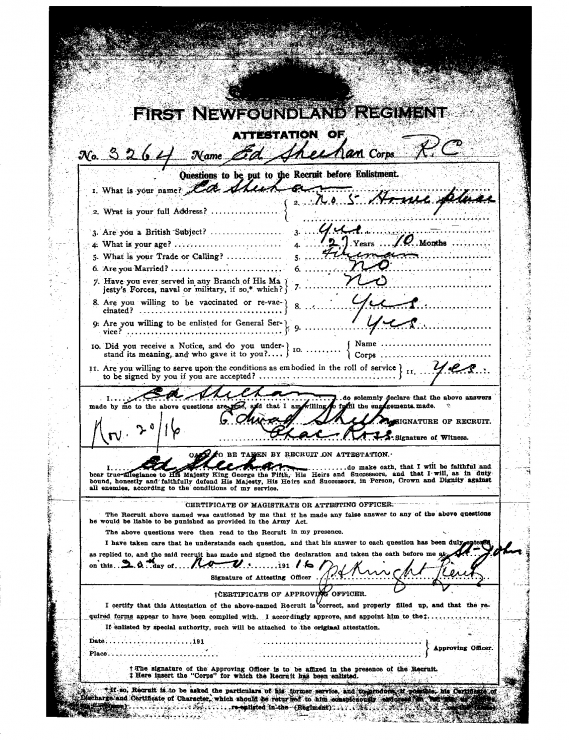 FIRST NEWFOUNDLAND REGIMENT
ATTESTATION OF
No. 3264 Name Ed Sheehan Corps R.C
Questions to be put to the Recruit before Enlistment.
1. What is your name? Ed Sheehan
2. What is your full Address? 2. No 5
3. Are you a British Subject? 3. Yes
4. What is your age? 4. 27 Years 10 Months
5. What is your Trade or Calling? 5. Fireman
6. Are you Married? 6. No
7. Have you ever served in any Branch of His Ma
jesty's Forces, naval or military, if so,* which? 7. No
8. Are you willing to be vaccinated or re-vac-
cinated? 8. Yes
9: Are you willing to be enlisted for General Ser-
vice? 9. Yes.
10. Did you receive a Notice, and do you under-
stand its meaning, and who gave it to you? 10. Name
Corps
11. Are you willing to serve upon the conditions as embodied in the roll of service
to be signed by you if you are accepted? 11. Yes.
I, Ed Sheehan do solemnly declare that the above answers
made by me to the above questions are true, and that I am willing to fulfil the engagements made.
SIGNATURE OF RECRUIT.
Nov. 20/16
Signature of Witness.
OATH TO BE TAKEN BY RECRUIT ON ATTESTATION.
I, Ed Sheehan do make oath, that I will be faithful and
bear true allegiance to His Majesty King George the Fifth, His Heirs and Successors, and that I will, as in duty
bound, honestly and faithfully defend His Majesty, His Heirs and Successors, in Person, Crown and Dignity against
all enemies, according to the conditions of my service.
CERTIFICATE OF MAGISTRATE OR ATTESTING OFFICER.
The Recruit above named was cautioned by me that if he made any false answer to any of the above questions
he would be liable to be punished as provided in the Army Act.
The above questions were then read to the Recruit in my presence.
I have taken care that he understands each question, and that his answer to each question has been duly entered
as replied to, and the said recruit has made and signed the declaration and taken the oath before me at St. John
on this 20th day of Nov. 1916
Signature of Attesting Officer
†CERTIFICATE OF APPROVING OFFICER.
I certify that this Attestation of the above-named Recruit is correct, and properly filled up, and that the re-
quired forms appear to have been complied with. I accordingly approve, and appoint him to the‡
If enlisted by special authority, such will be attached to the original attestation.
Date 191
Place
Approving Officer.
† The signature of the Approving Officer is to be affixed in the presence of the Recruit.
‡ Here insert the "Corps" for which the Recruit has been enlisted.
* If so, Recruit is to be asked the particulars of his former service, and to produce, if possible, his Certificate of
Discharge and Certificate of Character, which should be returned to him conspicuously
re-enlisted in the (Regiment)